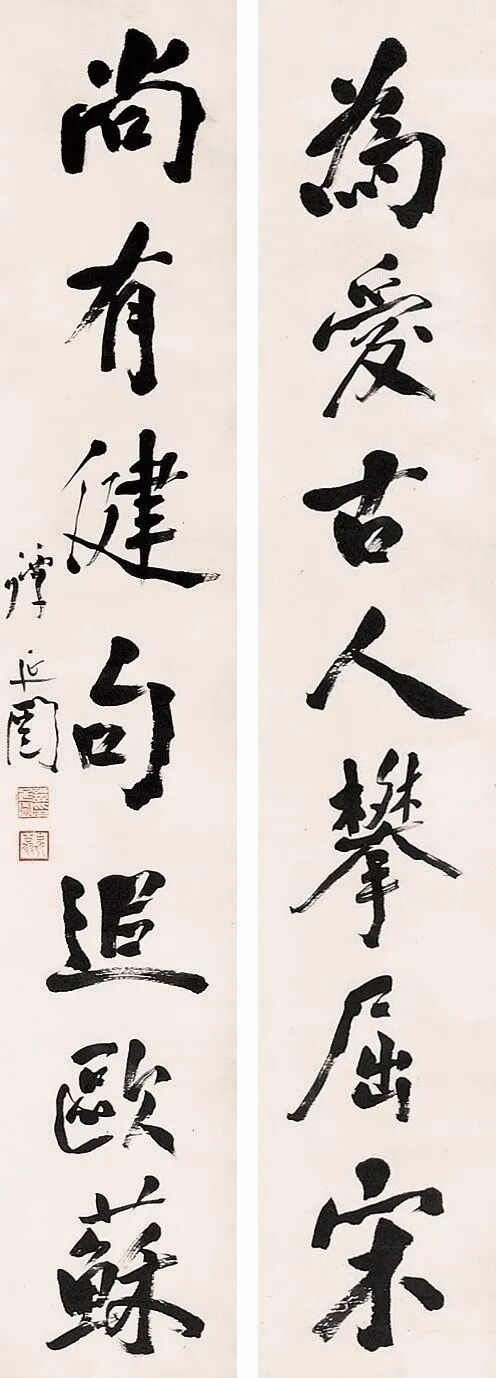 為愛古人攀屈宋
尚有健句追歐蘇
譚延闓